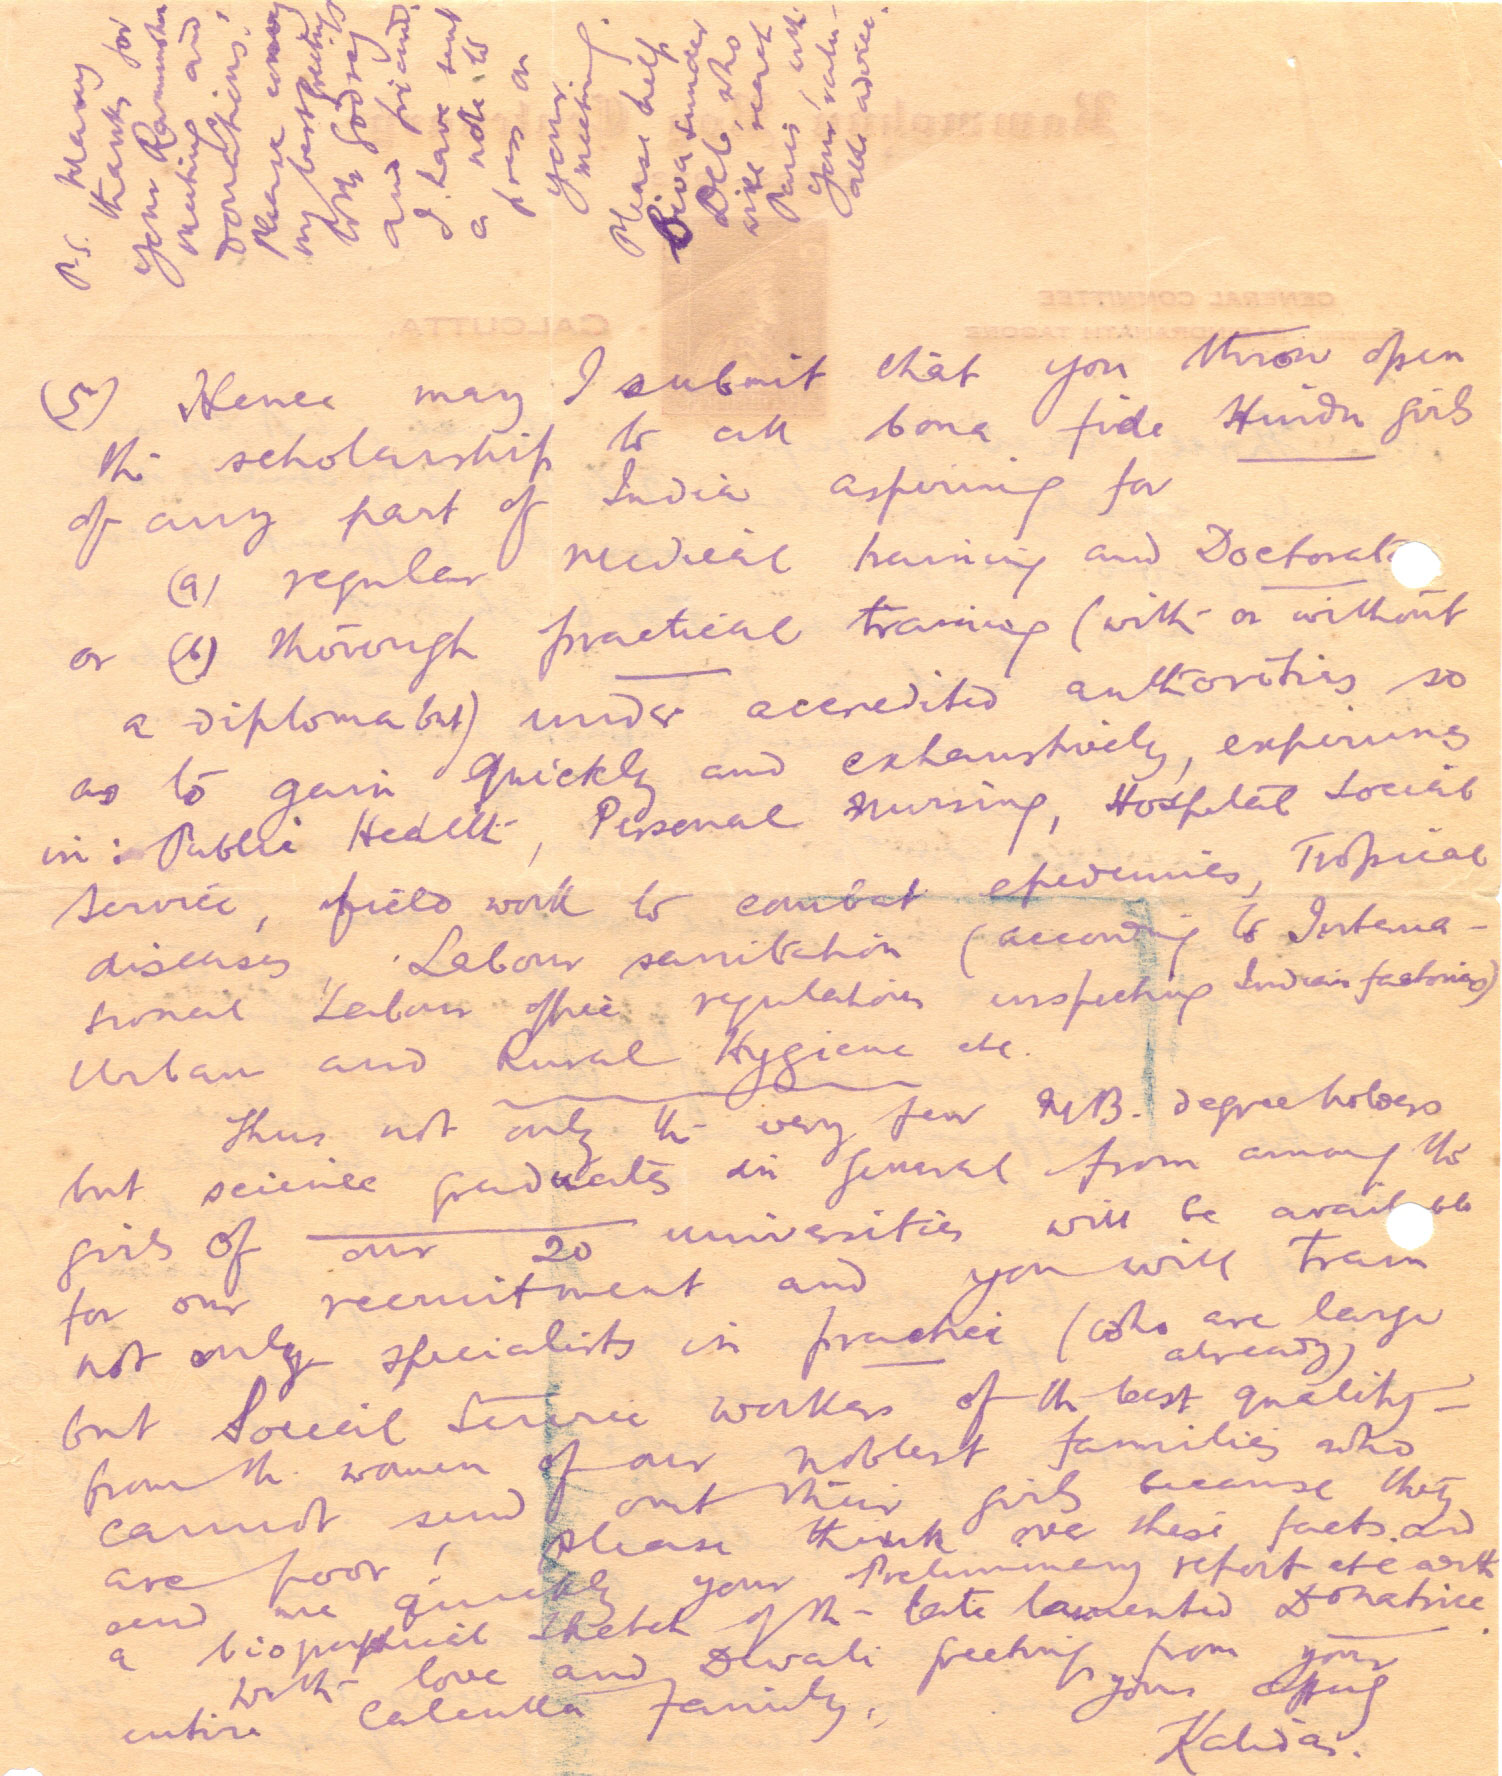 P.S. Many
thanks for
your Rammohun
meeting and
donations.
Please convey
my best greetings
to Godrej
and friends.
I have sent
a note to
press on
your
meeting.
Please help
Siva Sunder
Deb, who
will reach
Paris, with
your valu-
able advice.
Rammohun Centenary
GENERAL COMMITTEE
RABINDRANATH TAGORE
CALCUTTA.
(5) Hence may I submit that you throw open
the scholarship to all bona fide Hindu girls
of any part of India aspiring for
(a) regular medical training and Doctorate
or (b) thorough practical training (with or without
a diploma but) under accredited authorities so
as to gain quickly and exhaustively, experience
in: Public Health, Personal nursing, Hospital Social
Service, field work to combat epedemics, Tropical
diseases, Labour sanitation (according to Interna-
tional Labour office regulations inspecting Indian factories)
Urban and Rural Hygiene etc.
Thus not only the very few M.B. degree holders
but science graduates in general from among the
girls of our 20 universities will be available
for our recruitment and you will train
not only specialists in practice (who are large
already)
but Social Service workers of the best quality—
from the women of our noblest families who
cannot send out their girls because they
are poor! Please think over these facts and
send me quickly your Preliminary report etc with
a biographical sketch of the late lamented Donatrice.
With love and Diwali greetings from your
entire Calcutta Family,
yours affly
Kalidas.